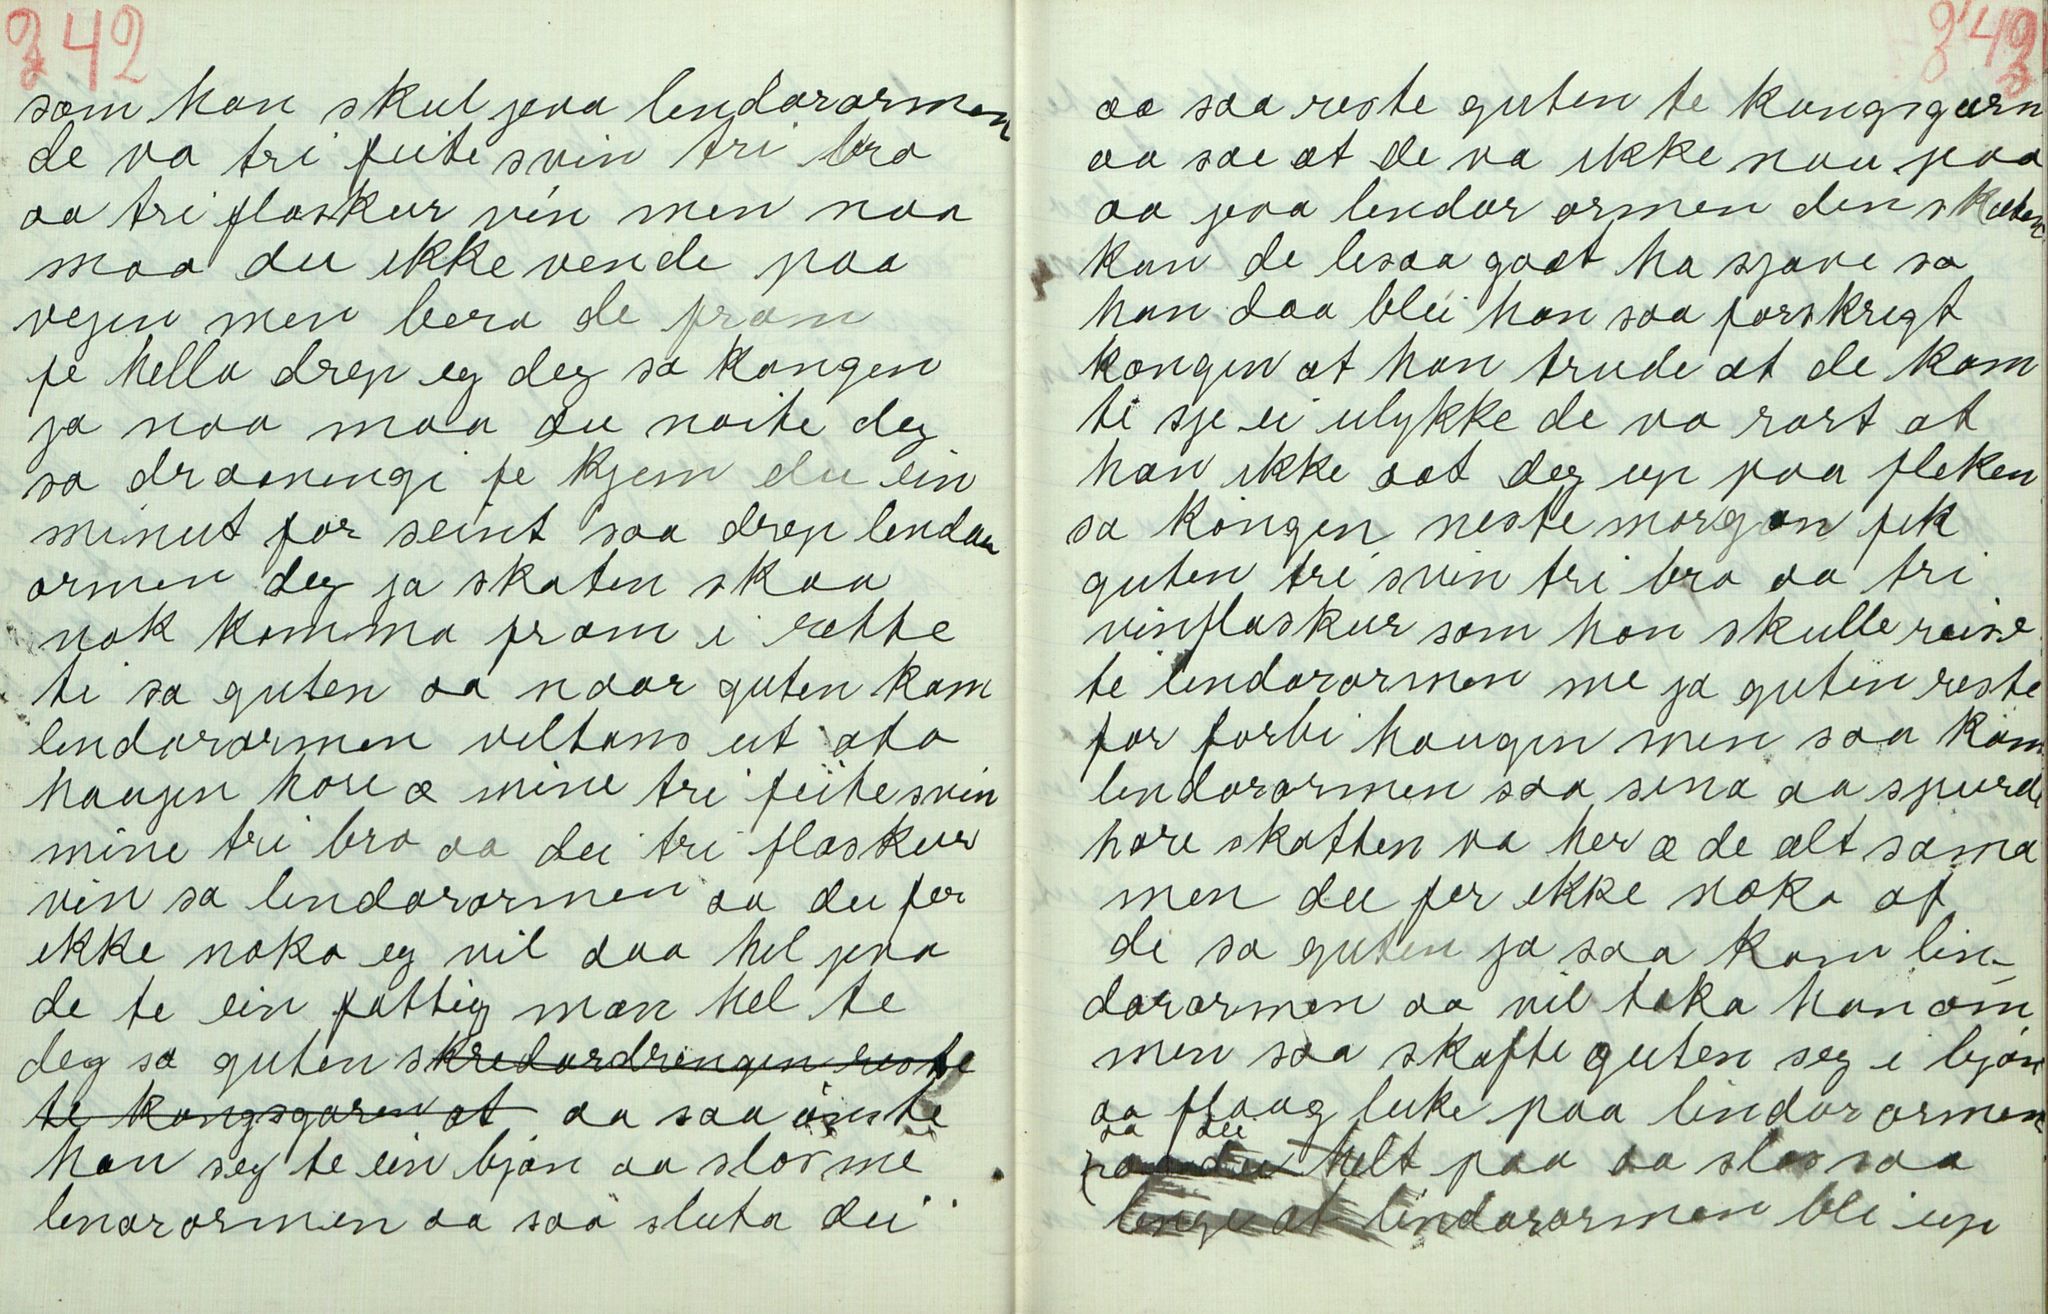 342
som han skul jeva lendarormen
de va tri feite svin tri bro
aa tri flaskur vin men naa
maa du ikke vende paa
vejen men bera de fram
fe hella drep eg deg sa kongen
ja naa maa du noite deg
sa dronningi fe kjem du ein
minut for seint saa drep lendar
ormen deg ja skaten skaa
nok komma fram i rette
ti sa guten aa naar guten kom
lendarormen veltans ut ata
haugen hore æ mine tri feite svin
mine tri bro aa dei tri flaskur
vin sa lendarormen aa du fer
ikke noko eg vil daa hel jeva
de te ein fattig man hel te
deg sa guten skredardrengen reste
te kongsgaren at aa saa önste
han seg te ein bjön aa slos me
lenarormen aa saa sluta dei
343
aa saa reste guten te kongsgarn
aa sae at de va ikke nou paa
aa jeva lendar ormen den skatten
kan de lesaa goot ha sjøve sa
han daa blei han saa forskregt
kongen at han trude at de kom
te sje ei ulykke de va rart at
han ikke aat deg up paa fleken
sa kongen neste morgon fik
guten tri svin tri bro aa tri
vinflaskur som han skulle reise
te lendarormen me ja guten reste
for forbi haugen men saa kom
lendarormen saa sena aa spurde
hore skatten va her æ de alt sama
men du fer ikke noko af
de sa guten ja saa kom lin-
darormen aa vil taka han om
men saa skafte guten seg i bjön
aa flaug like paa lindar ormen
aa dei
helt paa aa slos saa
lenge at lindarormen blei up